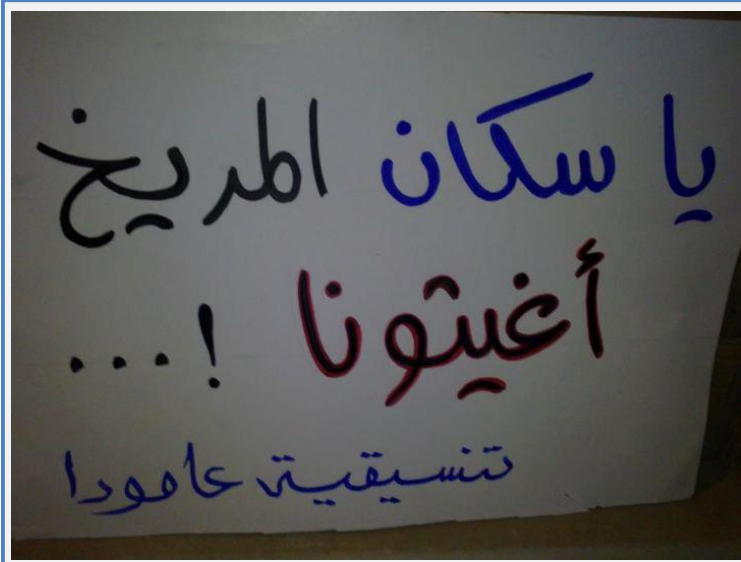 يا سكان المريخ
أغيثونا !...
تنسيقية عامودا